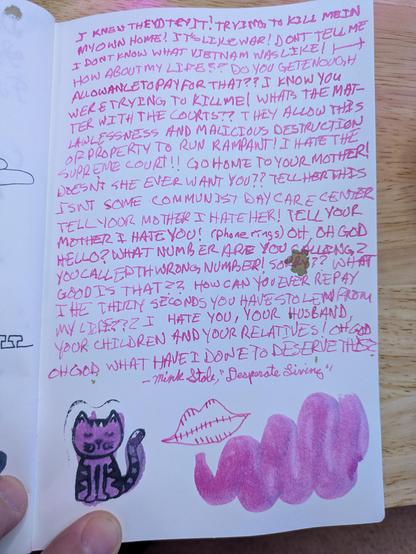 I KNEW THEY'D TRY IT! TRYING TO KILL ME IN
MY OWN HOME! IT'S LIKE WAR! DON'T TELL ME
I DON'T KNOW WHAT VIETNAM WAS LIKE!
HOW ABOUT MY LIFE?? DO YOU GET ENOUGH
ALLOWANCE TO PAY FOR THAT?? I KNOW YOU
WERE TRYING TO KILL ME! WHAT'S THE MAT-
TER WITH THE COURTS?? THEY ALLOW THIS
LAWLESSNESS AND MALICIOUS DESTRUCTION
OF PROPERTY TO RUN RAMPANT! I HATE THE
SUPREME COURT!! GO HOME TO YOUR MOTHER!
DOESN'T SHE EVER WANT YOU?? TELL HER THIS
ISNT SOME COMMUNIST DAY CARE CENTER
TELL YOUR MOTHER I HATE HER! TELL YOUR
MOTHER I HATE YOU! (phone rings) OH, OH GOD
HELLO? WHAT NUMBER ARE YOU CALLING?
YOU CALLED TH WRONG NUMBER! WHAT
GOOD IS THAT?? HOW CAN YOU EVER REPAY
THE THIRTY SECONDS YOU HAVE STOLEN FROM
MY LIFE??? I HATE YOU, YOUR HUSBAND,
YOUR CHILDREN AND YOUR RELATIVES! OH GOD
OH GOD, WHAT HAVE I DONE TO DESERVE THIS?
—Mink Stole, "Desperate Living"